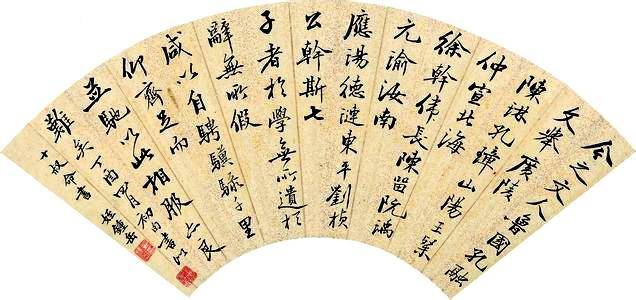 今之文人魯國孔融
文舉廣陵
陳琳孔璋山陽王粲
仲宣北海
徐幹偉長陳留阮瑀
元渝汝南
應湯德漣東平劉楨
公幹斯七
子者於學無所遺於
辭無所假
咸以自騁驥騄千里
仰齊足而
並馳以此相服亦良
難矣丁酉四月初旬書以
十叔命書 姪鍾岳